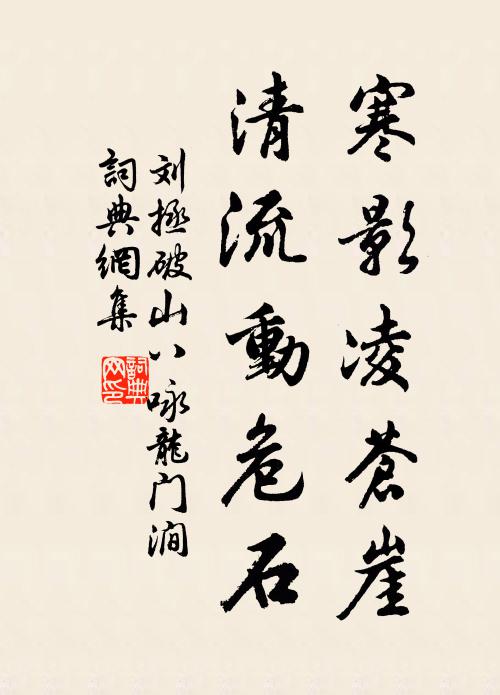 寒影凌蒼崖
清流動危石
刘拯破山八咏龍门澗
詞典網集
詞典网印